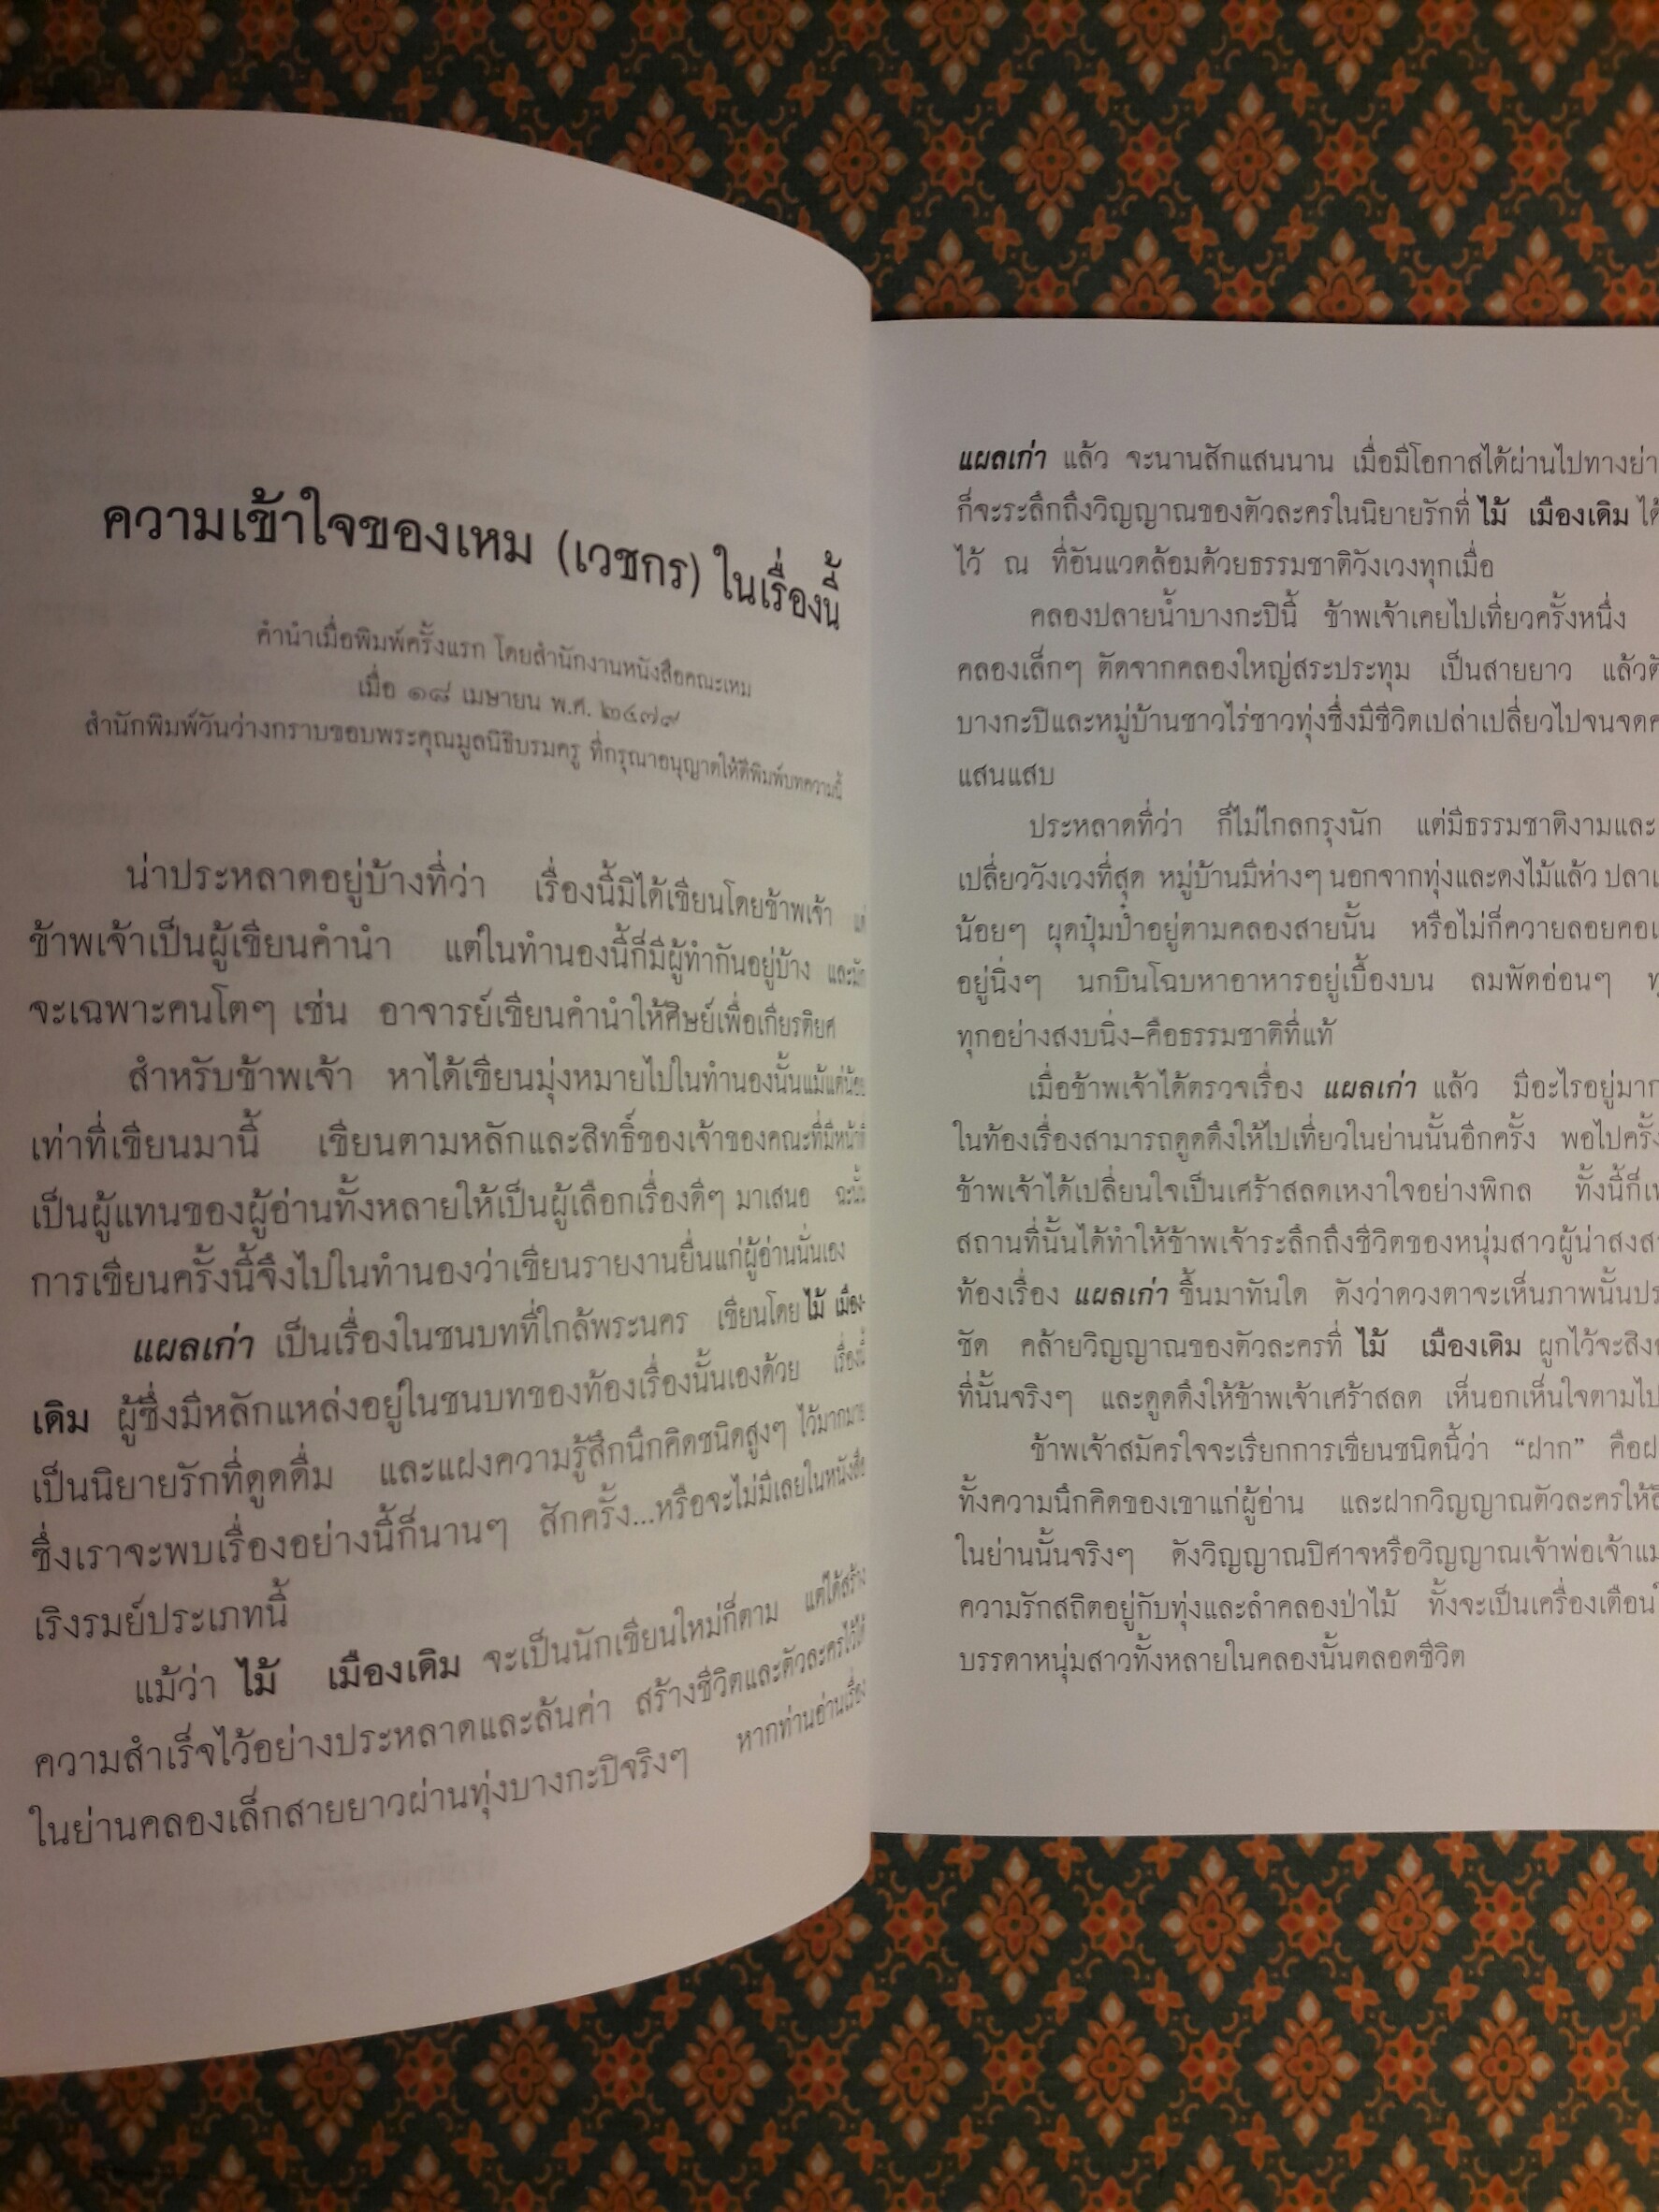 ความเข้าใจของเหม (เวชกร) ในเรื่องนี้
คำนำเมื่อพิมพ์ครั้งแรก โดยสำนักงานหนังสือคณะเหม
เมื่อ ๑๘ เมษายน พ.ศ. ๒๔๗๙
สำนักพิมพ์วันว่างกราบขอบพระคุณมูลนิธิบรมครู ที่กรุณาอนุญาตให้ตีพิมพ์บทความนี้
น่าประหลาดอยู่บ้างที่ว่า เรื่องนี้มิได้เขียนโดยข้าพเจ้า
ข้าพเจ้าเป็นผู้เขียนคำนำ แต่ในทำนองนี้ก็มีผู้ทำกันอยู่บ้าง และมัก
จะเฉพาะคนโตๆ เช่น อาจารย์เขียนคำนำให้ศิษย์เพื่อเกียรติยศ
สำหรับข้าพเจ้า หาได้เขียนมุ่งหมายไปในทำนองนั้นแม้แต่น้อย
เท่าที่เขียนมานี้ เขียนตามหลักและสิทธิ์ของเจ้าของคณะที่มีหน้าที่
เป็นผู้แทนของผู้อ่านทั้งหลายให้เป็นผู้เลือกเรื่องดีๆ มาเสนอ ฉะนั้น
การเขียนครั้งนี้จึงไปในทำนองว่าเขียนรายงานยื่นแก่ผู้อ่านนั่นเอง
แผลเก่า เป็นเรื่องในชนบทที่ใกล้พระนคร เขียนโดย ไม้ เมือง-
เดิม ผู้ซึ่งมีหลักแหล่งอยู่ในชนบทของท้องเรื่องนั้นเองด้วย เรื่องนี้
เป็นนิยายรักที่ดูดดื่ม และแฝงความรู้สึกนึกคิดชนิดสูงๆ ไว้มากมาย
ซึ่งเราจะพบเรื่องอย่างนี้ก็นานๆ สักครั้ง...หรือจะไม่มีเลยในหนังสือ
เริงรมย์ประเภทนี้
แม้ว่า ไม้ เมืองเดิม จะเป็นนักเขียนใหม่ก็ตาม แต่ได้สร้าง
ความสำเร็จไว้อย่างประหลาดและล้นค่า สร้างชีวิตและตัวละครไว้ให้
ในย่านคลองเล็กสายยาวผ่านทุ่งบางกะปิจริงๆ หากท่านอ่านเรื่อง
แผลเก่า แล้ว จะนานสักแสนนาน เมื่อมีโอกาสได้ผ่านไปทาง
ก็จะระลึกถึงวิญญาณของตัวละครในนิยายรักที่ ไม้ เมืองเดิม
ไว้ ณ ที่อันแวดล้อมด้วยธรรมชาติวังเวงทุกเมื่อ
คลองปลายน้ำบางกะปินี้ ข้าพเจ้าเคยไปเที่ยวครั้งหนึ่ง
คลองเล็กๆ ตัดจากคลองใหญ่สระประทุม เป็นสายยาว แล้ว
บางกะปิและหมู่บ้านชาวไร่ชาวทุ่งซึ่งมีชีวิตเปล่าเปลี่ยวไปจน
แสนแสบ
ประหลาดที่ว่า ก็ไม่ไกลกรุงนัก แต่มีธรรมชาติงามและ
เปลี่ยววังเวงที่สุด หมู่บ้านมีห่างๆ นอกจากทุ่งและดงไม้แล้ว
น้อยๆ ผุดปุ๋มป๋ำอยู่ตามคลองสายนั้น หรือไม่ก็ควายลอยคอ
อยู่นิ่งๆ นกบินโฉบหาอาหารอยู่เบื้องบน ลมพัดอ่อนๆ
ทุกอย่างสงบนิ่ง–คือธรรมชาติที่แท้
เมื่อข้าพเจ้าได้ตรวจเรื่อง แผลเก่า แล้ว มีอะไรอยู่มาก
ในท้องเรื่องสามารถดูดดึงให้ไปเที่ยวในย่านนั้นอีกครั้ง พอไปครั้ง
ข้าพเจ้าได้เปลี่ยนใจเป็นเศร้าสลดเหงาใจอย่างพิกล ทั้งนี้ก็
สถานที่นั้นได้ทำให้ข้าพเจ้าระลึกถึงชีวิตของหนุ่มสาวผู้น่า
ท้องเรื่อง แผลเก่า ขึ้นมาทันใด ดังว่าดวงตาจะเห็นภาพนั้น
ชัด คล้ายวิญญาณของตัวละครที่ ไม้ เมืองเดิม ผูกไว้จะสิง
ที่นั้นจริงๆ และดูดดึงให้ข้าพเจ้าเศร้าสลด เห็นอกเห็นใจตามไป
ข้าพเจ้าสมัครใจจะเรียกการเขียนชนิดนี้ว่า “ฝาก” คือ
ทั้งความนึกคิดของเขาแก่ผู้อ่าน และฝากวิญญาณตัวละครให้
ในย่านนั้นจริงๆ ดังวิญญาณปิศาจหรือวิญญาณเจ้าพ่อเจ้าแม่
ความรักสถิตอยู่กับทุ่งและลำคลองป่าไม้ ทั้งจะเป็นเครื่องเตือน
บรรดาหนุ่มสาวทั้งหลายในคลองนั้นตลอดชีวิต